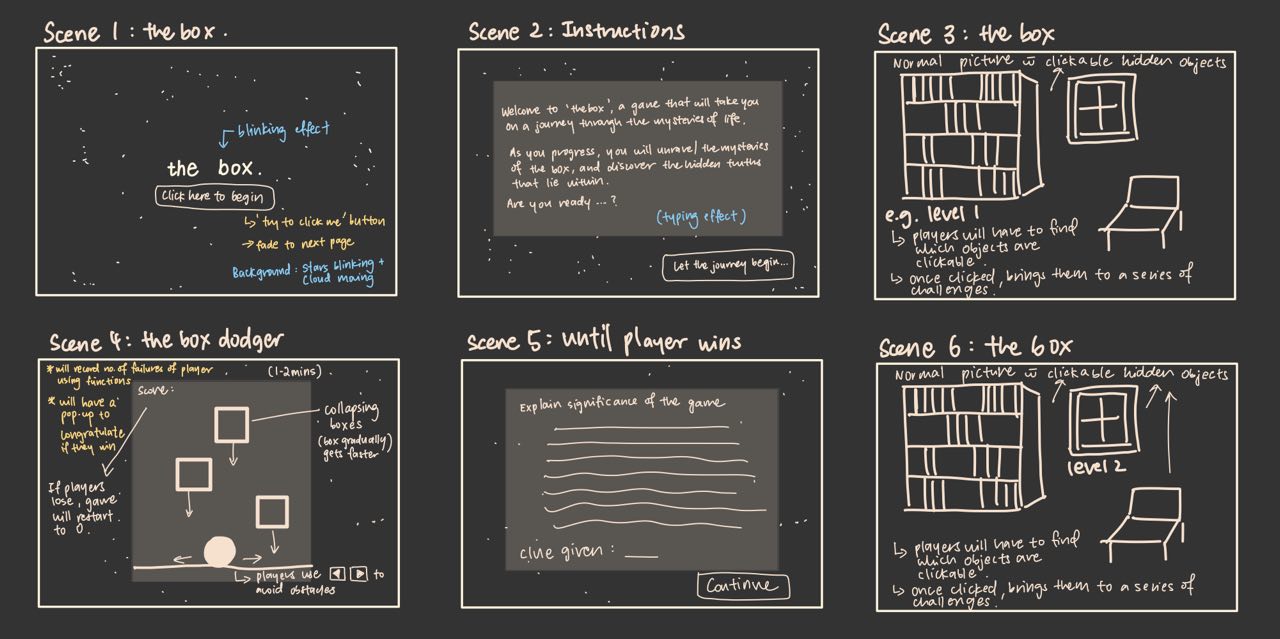 Scene 1 : the box .
blinking effect
the box.
Click here to begin
↳ 'try to click me' button
→ fade to next page
Background : stars blinking +
cloud moving
Scene 2 : Instructions
Welcome to 'the box', a game that will take you
on a journey through the mysteries of life.
As you progress, you will unravel the mysteries
of the box, and discover the hidden truths
that lie within.
Are you ready ... ?
(typing effect)
Let the journey begin...
Scene 3 : the box
Normal picture w̄ clickable hidden objects
e.g. level 1
↳ players will have to find
which objects are
clickable
↳ once clicked, brings them to a series of
challenges.
Scene 4 : the box dodger
* will record no. of failures of player
using functions
(1-2mins)
* will have a
pop-up to
congratulate
if they win
Score :
collapsing
boxes
(box gradually
gets faster)
If players
lose, game
will restart
to 0.
↳ players use ◀ ▶ to
avoid obstacles
Scene 5 : until player wins
Explain significance of the game
clue given : ___
Continue
Scene 6 : the box
Normal picture w̄ clickable hidden objects
level 2
↳ players will have to find
which objects are
clickable
↳ once clicked, brings them to a series of
challenges.